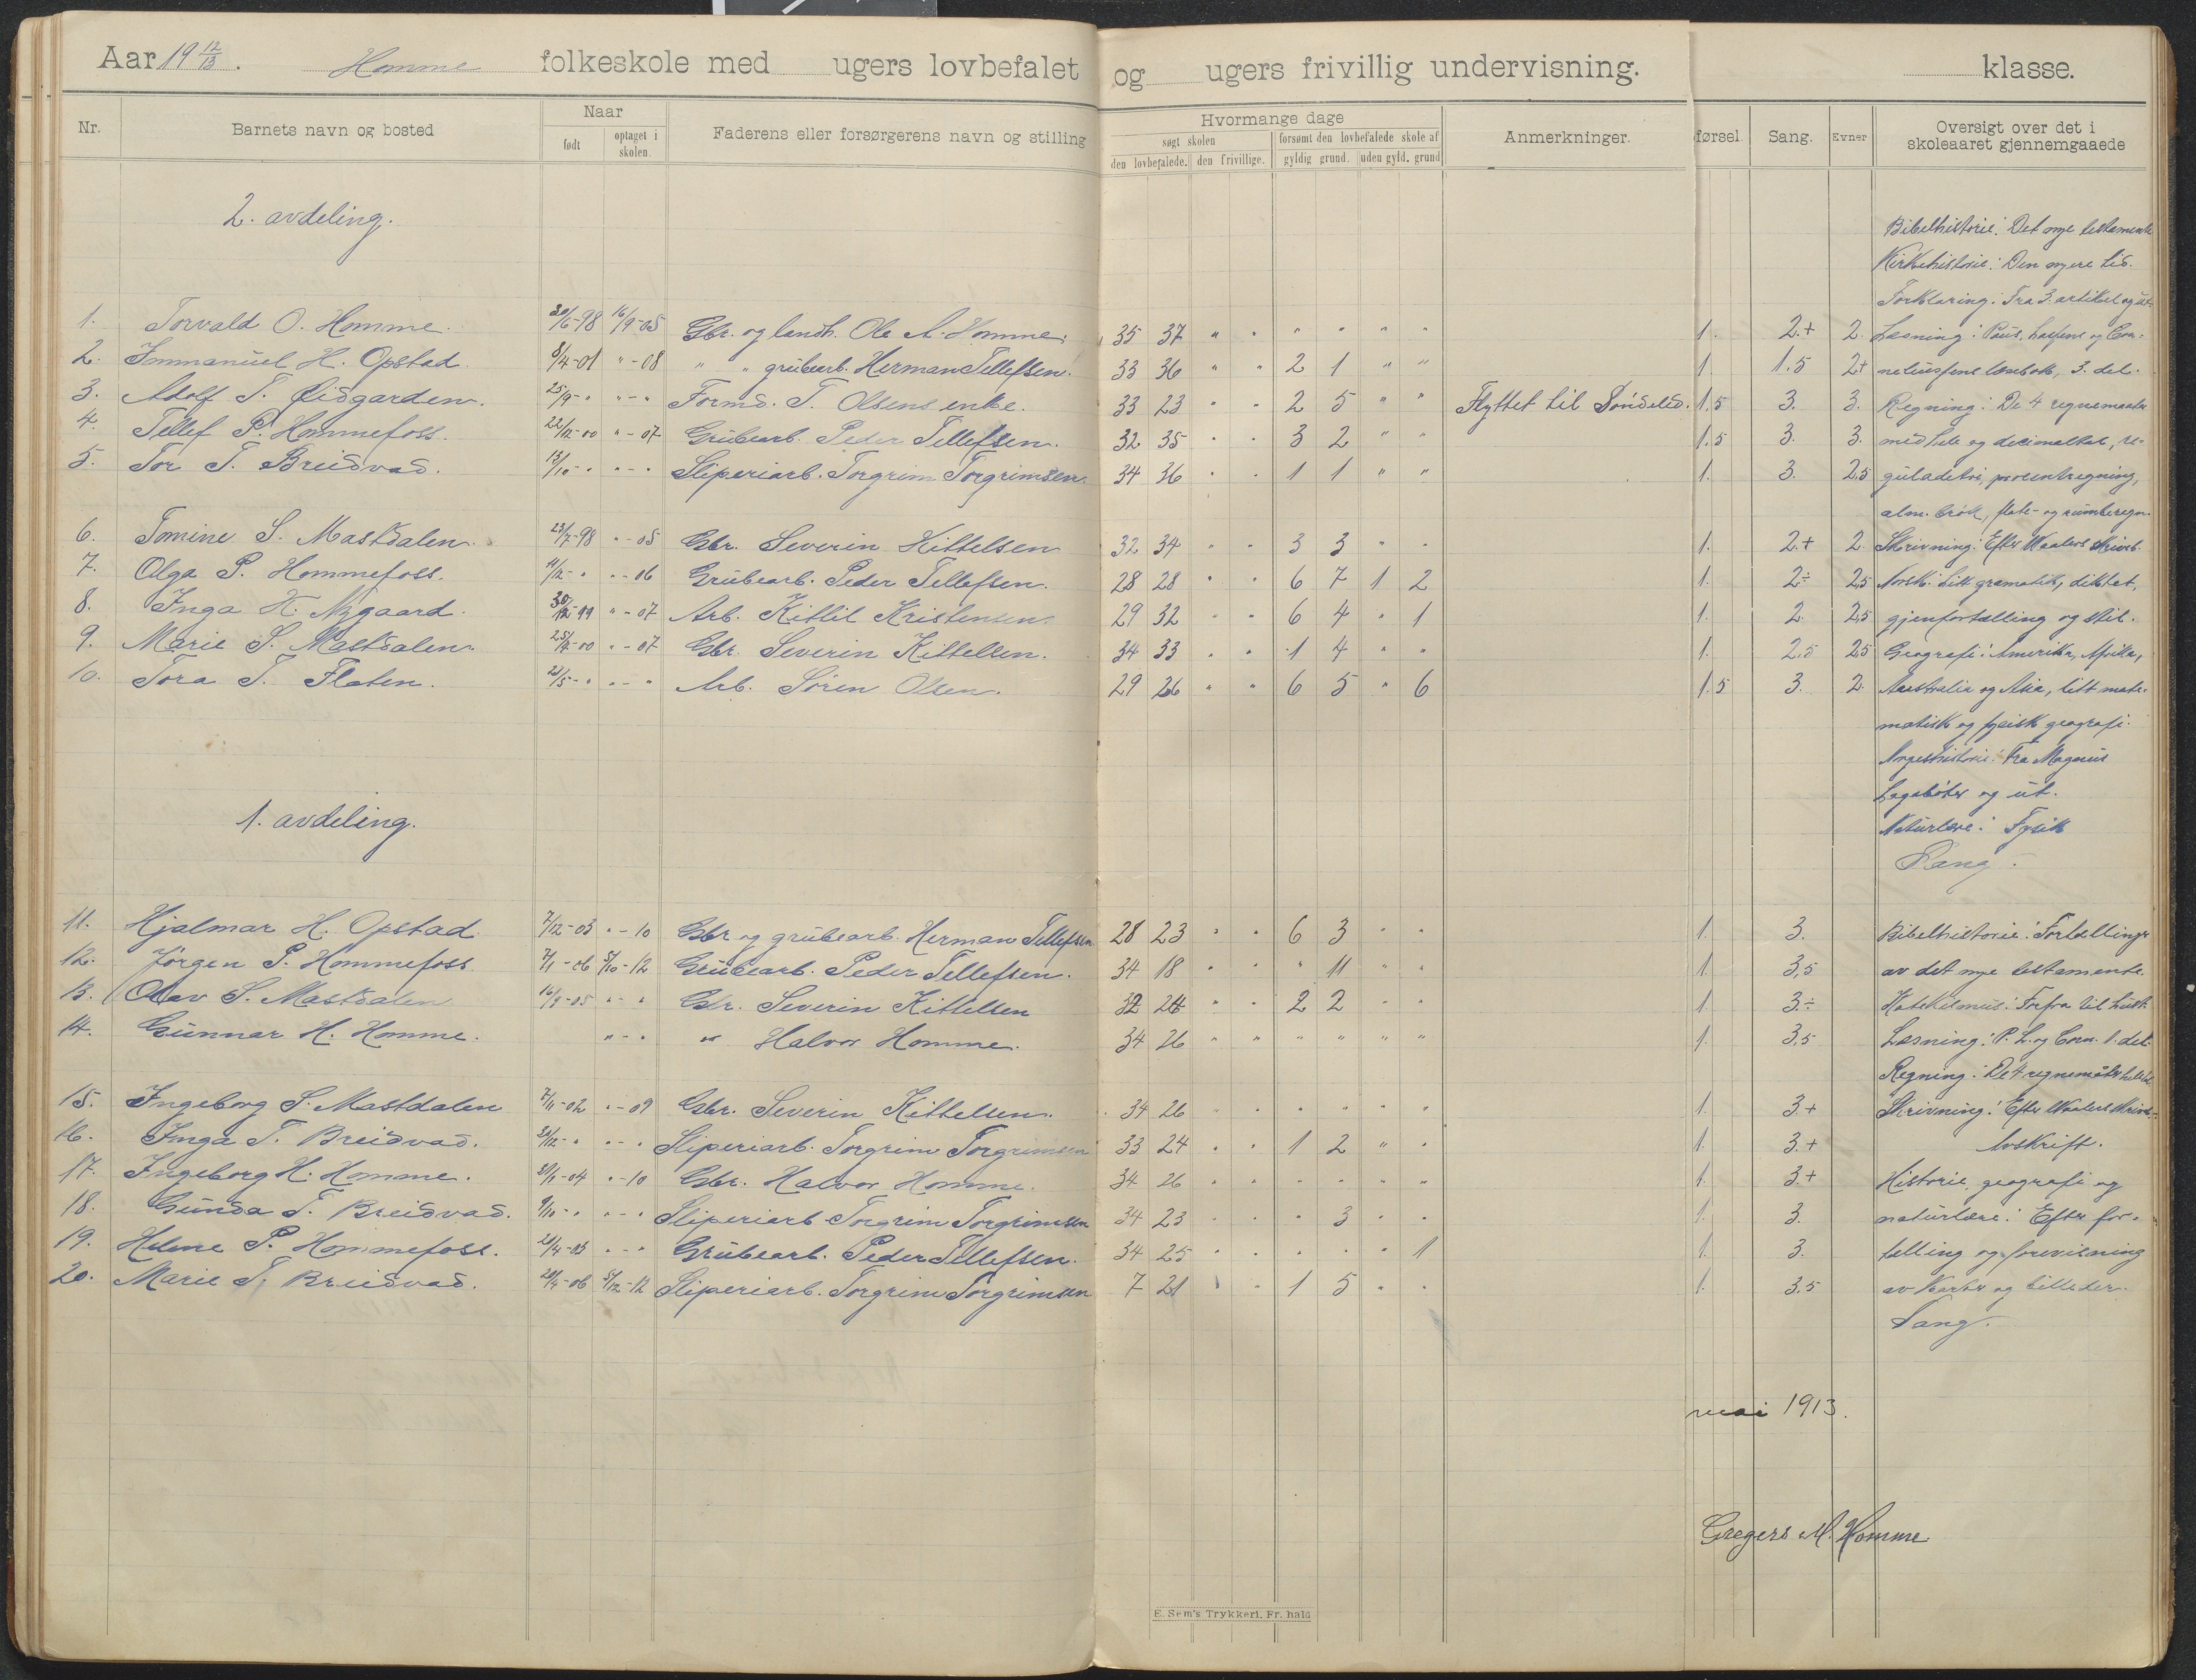 Aar 19 12/13. Homme folkeskole med ugers lovbefalet og ugers frivillig undervisning. klasse.
Nr. Barnets navn og bosted Naar født optaget i skolen. Faderens eller forsørgerens navn og stilling Hvormange dage søgt skolen den lovbefalede. den frivillige. forsømt den lovbefalede skole af gyldig grund. uden gyld. grund Anmerkninger. førsel. Sang. Evner Oversigt over det i skoleaaret gjennemgaaede
2. avdeling.
Bibelhistorie: Det nye testamente
Kirkehistorie: Den nyere tid.
Forklaring: Fra 3. artikel og ut.
1. Torvald O. Homme. 30/6-98 16/9-05 Gbr. og landh. Ole A. Homme. 35 37 " " " " " " 1. 2.+ 2. Læsning: Paus, Lassens og Cor-
2. Immanuel H. Opstad. 8/4-01 "-08 " " grubearb. Herman Tellefsen. 33 36 " " 2 1 " " 1. 1.5 2+ neliussens læsebok, 3. del.
3. Adolf T. Øidgarden. 25/9-" "-" Formd. T. Olsens enke. 33 23 " " 2 5 " " Flyttet til Søndeled. 1.5 3. 3. Regning: De 4 regnemaater
4. Tellef P. Hommefoss. 22/12-00 "-07 Grubearb. Peder Tellefsen. 32 35 " " 3 2 " " 1.5 3. 3. med hele og decimaltal, re-
5. Tor T. Breidvad. 13/10-" "-" Sliperiarb. Torgrim Torgrimsen. 34 36 " " 1 1 " " 1. 3. 2.5 guladetri, procentregning,
alm. brøk, flate- og rumberegn.
6. Tomine S. Mastdalen. 23/7-98 "-05 Gbr. Severin Kittelsen 32 34 " " 3 3 " " 1. 2.+ 2. Skrivning: Efter Waalers skrives.
7. Olga P. Hommefoss. 11/12-" "-06 Grubearb. Peder Tellefsen. 28 28 " " 6 7 1 2 1. 2÷ 2.5 Norsk: Litt gramatik, diktat,
8. Inga K. Nygaard. 30/12-99 "-07 Arb. Kittil Kristensen 29 32 " " 6 4 " 1 1. 2. 2.5 gjenfortælling og stil.
9. Marie S. Mastdalen. "-07 Gbr. Severin Kittelsen. 34 33 " " 1 4 " " 1. 2.5 2.5 Geografi: Amerika, Afrika,
10. Tora T. Flaten. 21/5-" "-" Arb. Søren Olsen. 29 26 " " 6 5 " 6 1.5 3. 2. Australia og Asia, litt mate-
matisk og fysisk geografi.
Norgeshistorie: Fra Magnus
Lagabøter og ut.
Naturlære: Fysik
Sang.
1. avdeling.
11. Hjalmar H. Opstad. 7/12-03 "-10 Gbr og grubearb. Herman Tellefsen 28 23 " " 6 3 " " 1. 3. Bibelhistorie: Fortællinger
12. Jørgen P. Hommefoss 7/1-06 5/10-12 Grubearb. Peder Tellefsen. 34 18 " " " 11 " " 1. 3,5 av det nye testamente.
13. Olav S. Mastdalen 16/9-05 "-" Gbr. Severin Kittelsen 32 24 " " 2 2 " " 1. 3.÷ Katekismus: Forfra til
14. Gunnar H. Homme. "-" " Halvor Homme. 34 26 " " " " " " 1. 3,5 Læsning: P. L. og Corn. 1. del.
Regning: De 4 regnemåter
15. Ingeborg S. Mastdalen 7/11-02 "-09 Gbr. Severin Kittelsen. 34 26 " " " " " " 1. 3.+ Skrivning: Efter Waalers skrives.
16. Inga T. Breidvad. "-" Sliperiarb. Torgrim Torgrimsen 33 24 " " 1 2 " " 1. 3.+ Avskrift.
17. Ingeborg H. Homme. "-10 Gbr. Halvor Homme. 34 26 " " " " " " 1. 3.+ Historie, geografi og
18. Gunda T. Breidvad. 9/10-" "-" Sliperiarb Torgrim Torgrimsen 34 23 " " " 3 " " 1. 3. naturlære: Efter for-
19. Helene P. Hommefoss. "-" Grubearb. Peder Tellefsen. 34 25 " " " " " 1 1. 3. telling og forevisning
20. Marie T. Breidvad. 5/12-12 Sliperiarb. Torgrim Torgrimsen 7 21 " " 1 5 " " 1. 3,5 av karter og billeder.
Sang.
mai 1913.
Gregers M. Homme
E. Sem's Trykkeri, Fr. hald